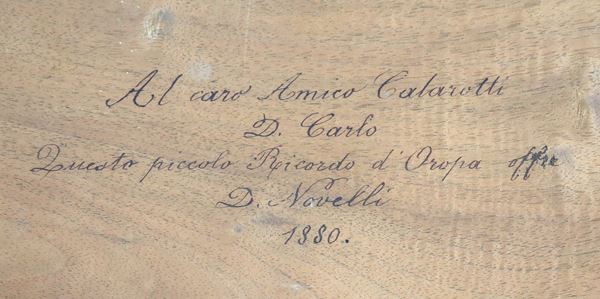 Al caro Amico Calarotti
D. Carlo
Questo piccolo Ricordo d'Oropa offre
D. Novelli
1880.